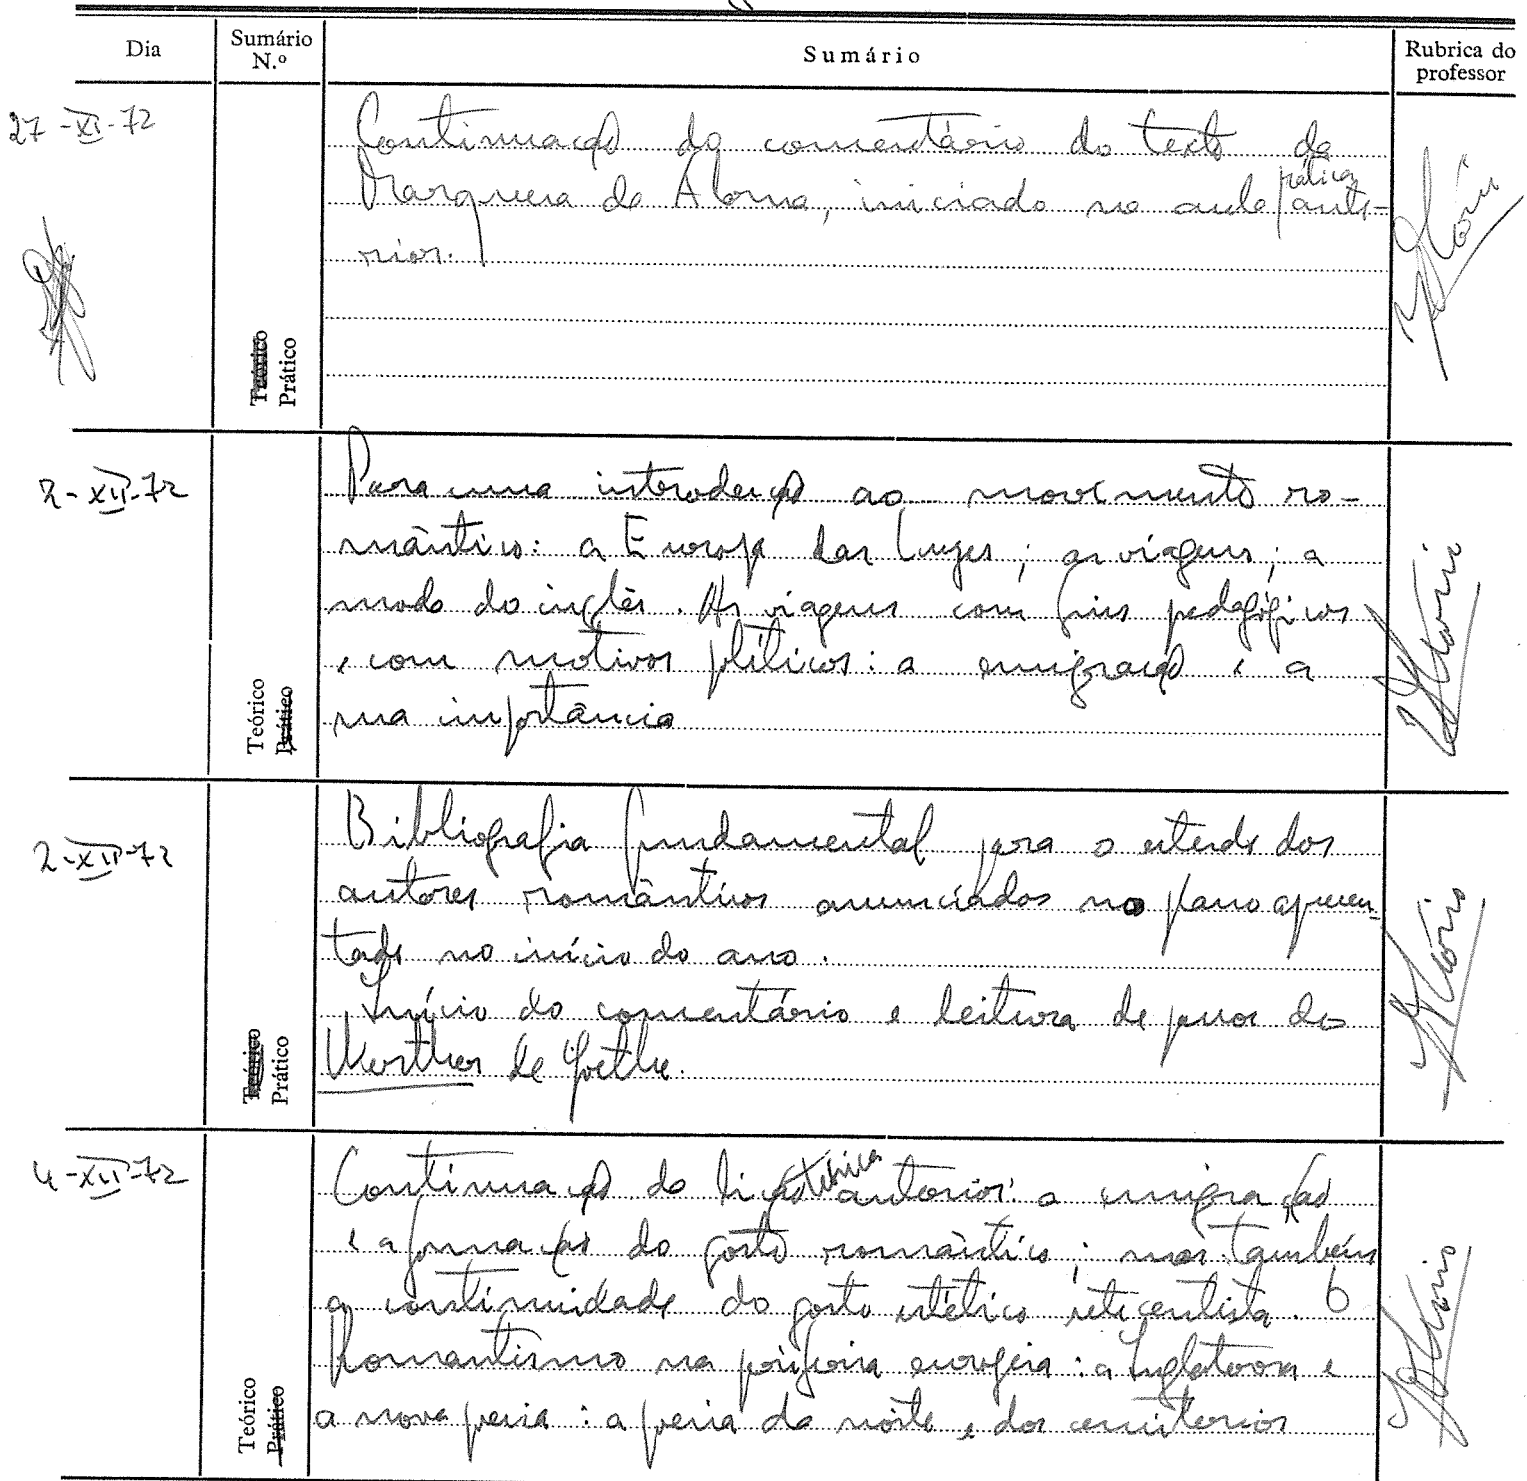 Dia
Sumário N.º
Sumário
Rubrica do professor
27-XI-72
Teórico
Prático
Continuação do comentário do texto da
Marquesa de Alorna, iniciado na aula prática ante-
rior.
2-XII-72
Teórico
Prático
Para uma introdução ao movimento ro-
mântico: a Europa das Luzes; as viagens; a
moda do inglês. As viagens com fins pedagógicos
e com motivos políticos: a emigração e a
sua importância
2-XII-72
Teórico
Prático
Bibliografia fundamental para o estudo dos
autores românticos anunciados no plano apresen-
tado no início do ano.
Início do comentário e leitura de passos do
Werther de Goethe.
4-XII-72
Teórico
Prático
Continuação da lição teórica anterior: a emigração
e a formação do gosto romântico; mas também
a continuidade do gosto estético setecentista. O
Romantismo na periferia europeia: a Inglaterra e
a nova poesia: a poesia da noite e dos cemitérios